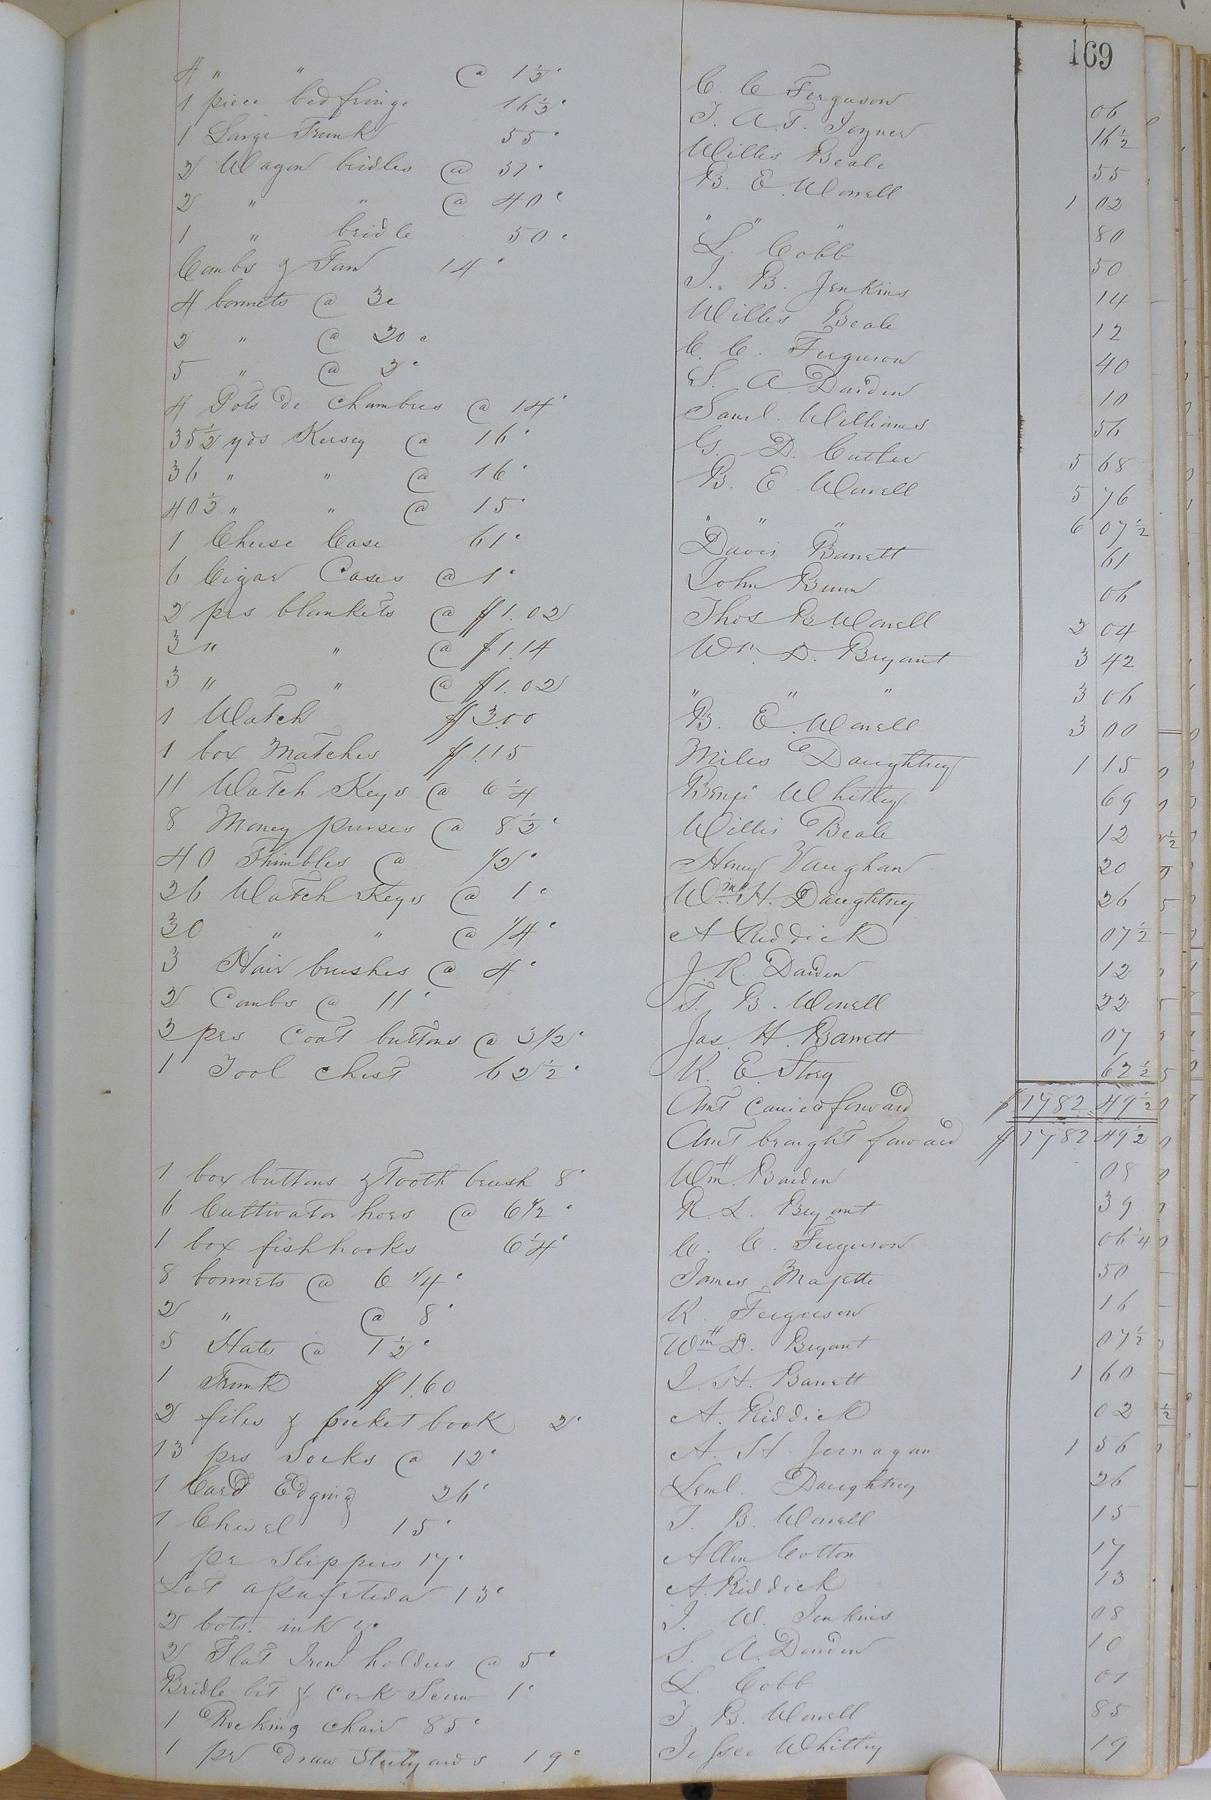 169
4 " " @ 1½c C. C. Ferguson 06
1 piece bed fringe 16½c J. A. T. Joyner 16½
1 Large Trunk 55c Willis Beale 55
2 Wagon bridles @ 51c B. E. Worrell 1 02
2 " " @ 40c " " " 80
1 " bridle 50c L. Cobb 50
Combs & Fan 14c J. B. Jenkins 14
4 bonnets @ 3c Willis Beale 12
2 " @ 20c C. C. Ferguson 40
5 " @ 2c S. A. Darden 10
4 Pots de Chambres @ 14c Saml. Williams 56
35½ yds Kersey @ 16c G. D. Cutler 5 68
36 " " @ 16c B. E. Worrell 5 76
40½ " " @ 15c " " " 6 07½
1 Cheese Case 61c Davis Barrett 61
6 Cigar Cases @ 1c John Bunn 06
2 prs blankets @ $1.02 Thos B. Worrell 2 04
3 " " @ $1.14 Wm. D. Bryant 3 42
3 " " @ $1.02 " " " 3 06
1 Watch $3.00 B. E. Worrell 3 00
1 box Matches $1.15 Miles Daughtrey 1 15
11 Watch Keys @ 6¼ Benj Whitley 69
8 Money purses @ 8½c Willis Beale 12
40 Thimbles @ ½c Henry Vaughan 20
26 Watch Keys @ 1c Wm. H. Daughtrey 26
30 " " @ ¼c A Riddick 07½
3 Hair brushes @ 4c J. R. Darden 12
2 Combs @ 11c T. B. Worrell 22
2 prs Coat buttons @ 3½c Jas. H. Barrett 07
1 Tool chest 62½c R. E. Story 62½
Amt carried forward $1782 49½
Amt brought forward $1782 49½
1 box buttons & Tooth brush 8c Wm. Barden 08
6 Cultivator hoes @ 6½c R. L. Bryant 39
1 box fishhooks 6¼c C. C. Ferguson 06¼
8 bonnets @ 6¼c James Majette 50
2 " @ 8c R. Ferguson 16
5 Hats @ 1½c Wm. D. Bryant 07½
1 Trunk $1.60 J. H. Barrett 1 60
2 files & pocket book 2c A. Riddick 02
13 prs Socks @ 12c A. H. Jernagan 1 56
1 Card Edging 26c Leml. Daughtrey 26
1 Chisel 15c T. B. Worrell 15
1 pr Slippers 17c Allen Cotton 17
Lot assafetida 13c A. Riddick 13
2 bots. ink J. W. Jenkins 08
2 Flat Iron holders @ 5c S. A. Darden 10
Bridle bit & cork Screw 1c L. Cobb 01
1 Rocking chair 85c T. B. Worrell 85
1 pr draw Steelyards 19c Jessee Whitley 19